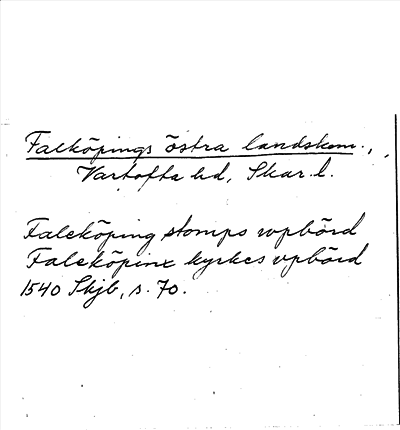 Falköpings östra landskom.,
Vartofta hd, Skar. l.
Faleköping stomps vpbörd
Faleköpinx kyrkes vpbörd
1540 Skjb, s. 70.